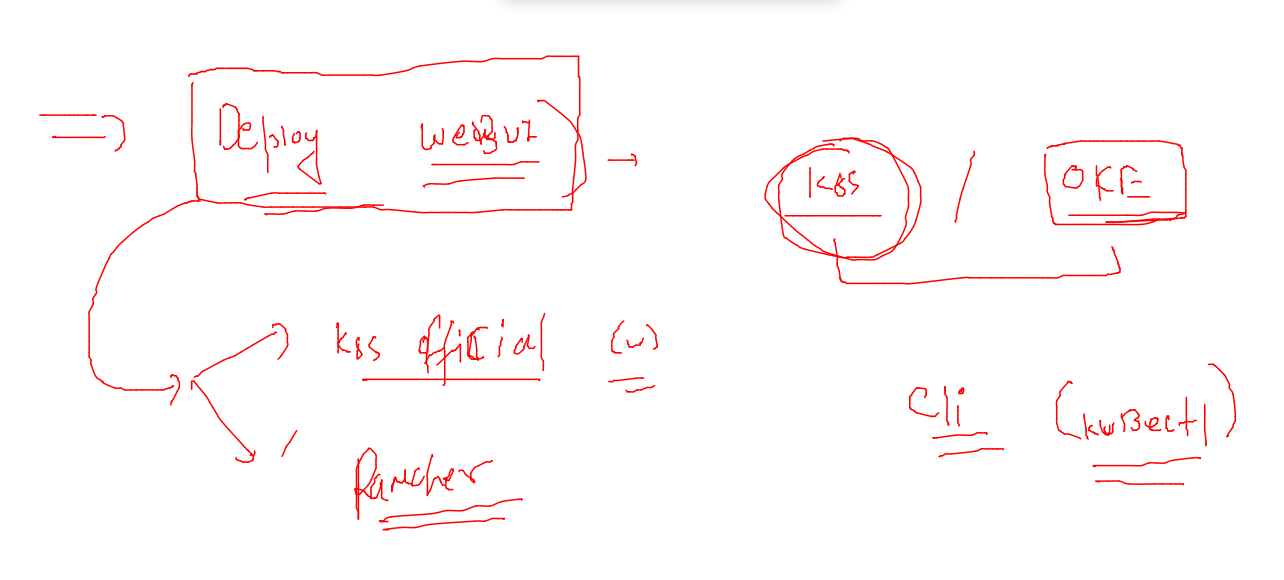 Deploy webUI
K8S / OKE
K8S official (w)
/ Rancher
cli (kuBectl)